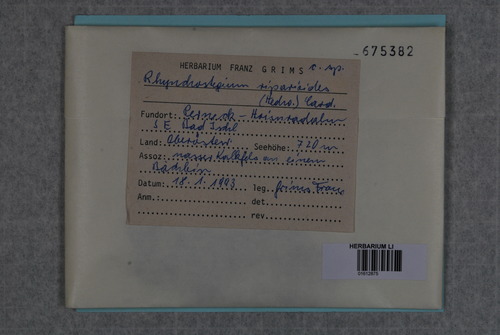 675382
HERBARIUM FRANZ GRIMS c. sp.
Rhynchostegium riparioides
(Hedw.) Card.
Fundort: Perneck -
S E Bad Ischl
Land: Oberösterr. Seehöhe: 720 m
Assoz: nasser Kalkfels an einem
Bächlein
Datum: 18.1.1993 leg. Grims Franz
Anm.: det.
rev.
HERBARIUM LI